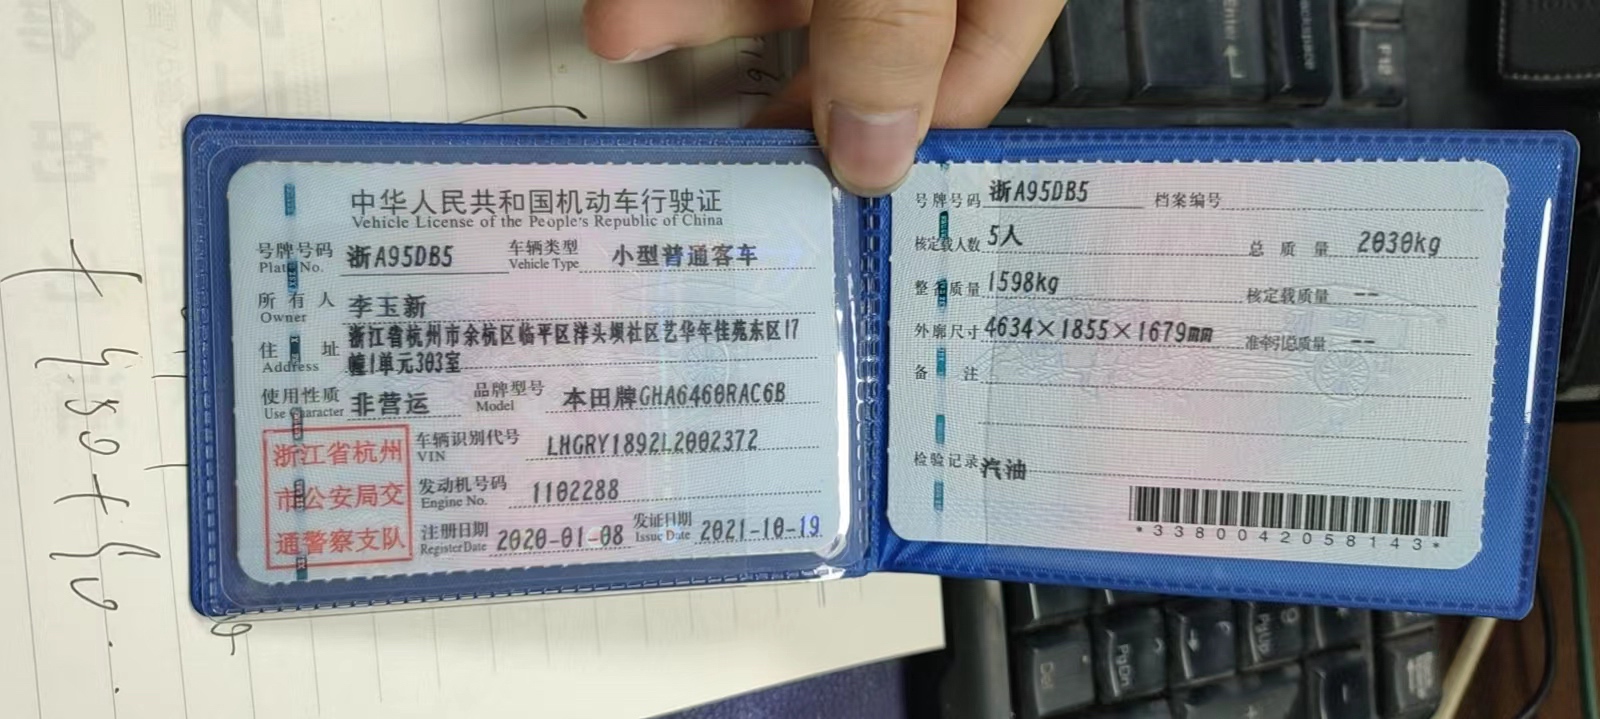 中华人民共和国机动车行驶证
Vehicle License of the People's Republic of China
号牌号码 浙A95DB5 车辆类型 小型普通客车
Plate No. Vehicle Type
所有人 李玉新
Owner
住址 浙江省杭州市余杭区临平区洋头坝社区艺华年佳苑东区17
Address 幢1单元303室
使用性质 非营运 品牌型号 本田牌GHA6460RAC6B
Use Character Model
浙江省杭州
市公安局交
通警察支队
车辆识别代号 LHGRY1892L2002372
VIN
发动机号码 1102288
Engine No.
注册日期 2020-01-08 发证日期 2021-10-19
Register Date Issue Date
号牌号码 浙A95DB5 档案编号
核定载人数 5人 总质量 2030kg
整备质量 1598kg 核定载质量 --
外廓尺寸 4634×1855×1679mm 准牵引总质量 --
备注
检验记录 汽油
*3380042058143*
Backspace
F12
Enter
Del
PgDn
PgUp